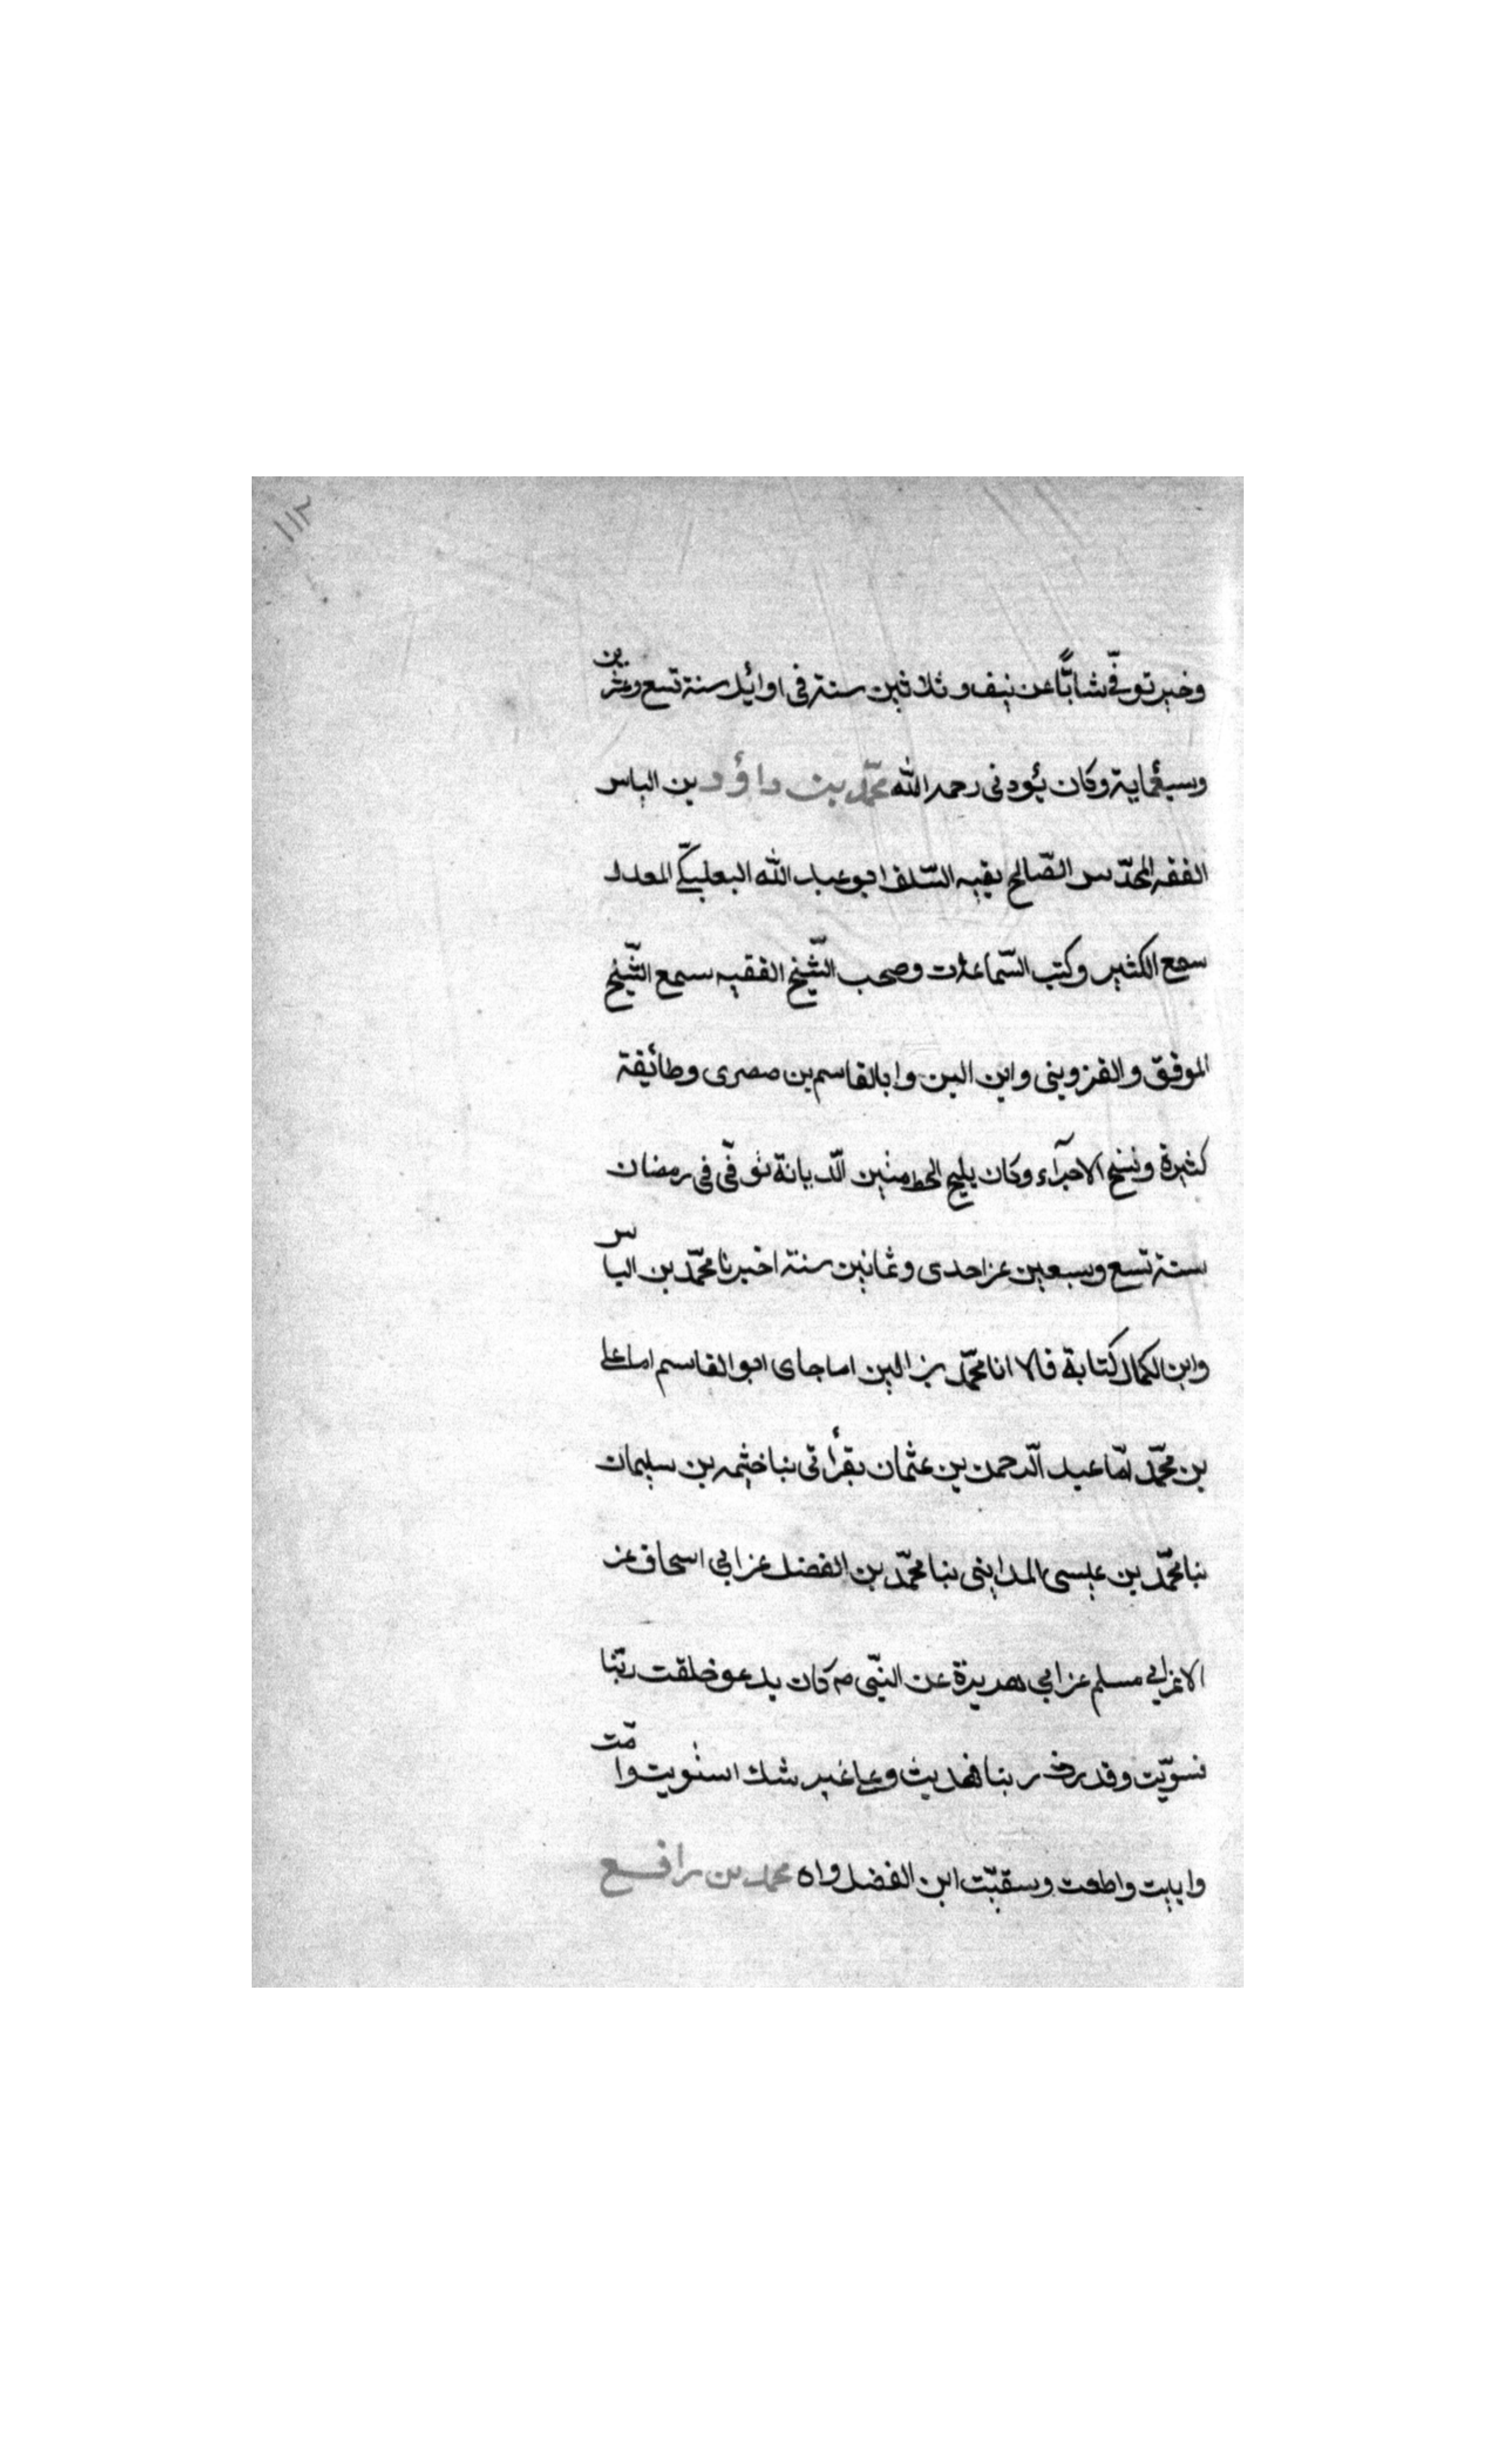 ١١٢
وخير توفّي شابًّا عن نيف وثلاثين سنة فى اوائيل سنة تسع وعشرين
وسبعماية وكان يؤدنى رحمه الله محمّد بن داؤد بن الياس
الفقه المحدّس الصّالح بقيه السّلف ابو عبد الله البعلبكّي المعدل
سمع الكثير وكتب السّماعات وصحب الشّيخ الفقيه سمع الشّيخ
الموفق والقزوينى وابن البن وابا لقاسم بن صصرى وطائيفة
كثيرة ونسخ الاجزآء وكان يليح الخط متين الّديانة توفّى فى رمضان
سنة تسع وسبعين عن احدى وثمانين سنة اخبرنا محمّد بن الياس
وابن الكمال كتابة قالا انا محمّد بن البن اما جاى ابو القاسم اما على
بن محمّد امّا عبد الّرحمن بن عثمان بقرأتى بنا خثيمه بن سليمان
بنا محمّد بن عيسى المداينى بنا محمّد بن الفضل عن ابي اسحاق عن
الاغر ابي مسلم عن ابي هريرة عن النبّى صم كان يدعو خلقت ربّنا
فسوّيت وقدرت ربنا فهديت وعلى غير شك استويت وامّت
وابيت واطعت وسقيّت ابن الفضل واه محمد بن رافع